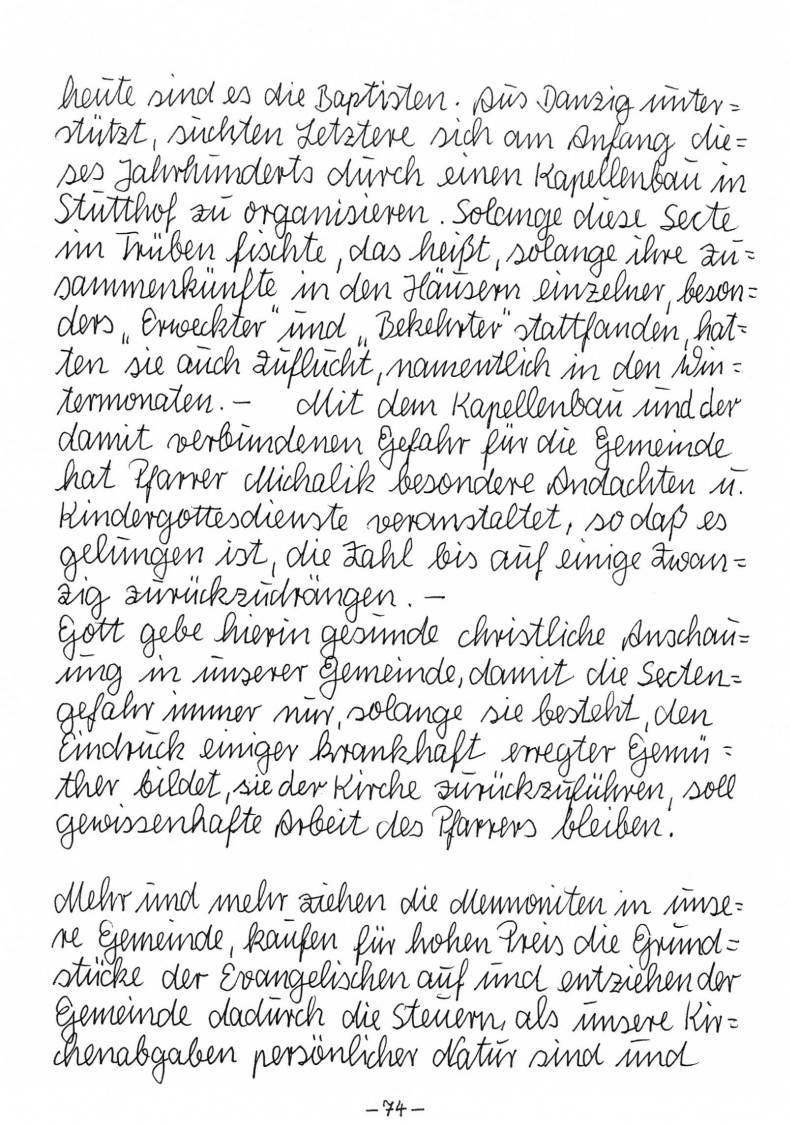 heute sind es die Baptisten. Aus Danzig unter=
stützt, suchten Letztere sich am Anfang die=
ses Jahrhunderts durch einen Kapellenbau in
Stutthof zu organisieren. Solange diese Secte
im Trüben fischte, das heißt, solange ihre Zu=
sammenkünfte in den Häusern einzelner, beson=
ders „Erweckter" und „Bekehrter" stattfanden, hat=
ten sie auch Zuflucht, namentlich in den Win=
termonaten. — Mit dem Kapellenbau und der
damit verbundenen Gefahr für die Gemeinde
hat Pfarrer Michalik besondere Andachten u.
Kindergottesdienste veranstaltet, so daß es
gelungen ist, die Zahl bis auf einige Zwan=
zig zurückzudrängen. —
Gott gebe hierin gesunde christliche Anschau=
ung in unserer Gemeinde, damit die Secten=
gefahr immer nur, solange sie besteht, den
Eindruck einiger krankhaft erregter Gemü=
ther bildet, sie der Kirche zurückzuführen, soll
gewissenhafte Arbeit des Pfarrers bleiben.
Mehr und mehr ziehen die Mennoniten in unse=
re Gemeinde, kaufen für hohen Preis die Grund=
stücke der Evangelischen auf und entziehen der
Gemeinde dadurch die Steuern, als unsere Kir=
chenabgaben persönlicher Natur sind und
– 74 –